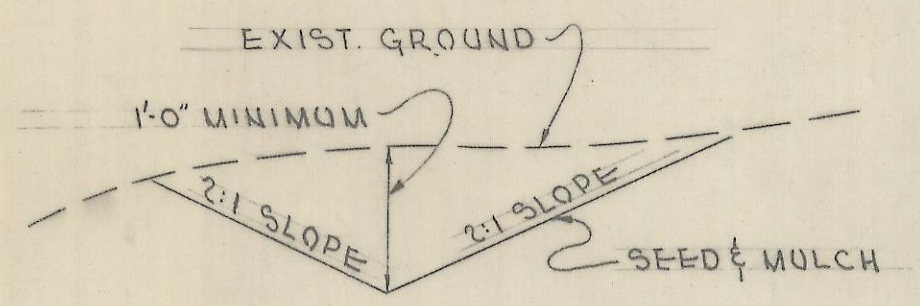 EXIST. GROUND
1'-0" MINIMUM
2:1 SLOPE
2:1 SLOPE
SEED & MULCH